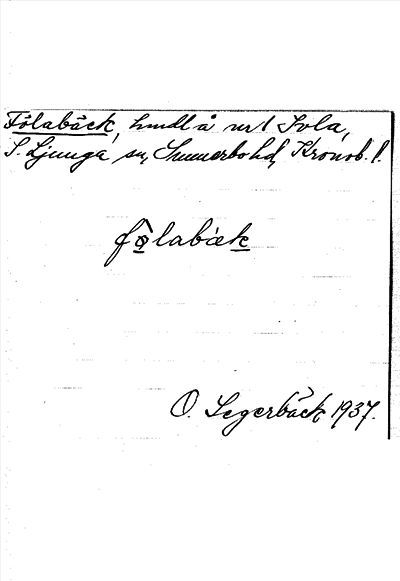 Fölabäck, hmdl å nr 1 Ivla,
S. Ljunga sn, Sunnerbo hd, Kronob. l.
fö̀labäk
O. Segerbäck 1937.